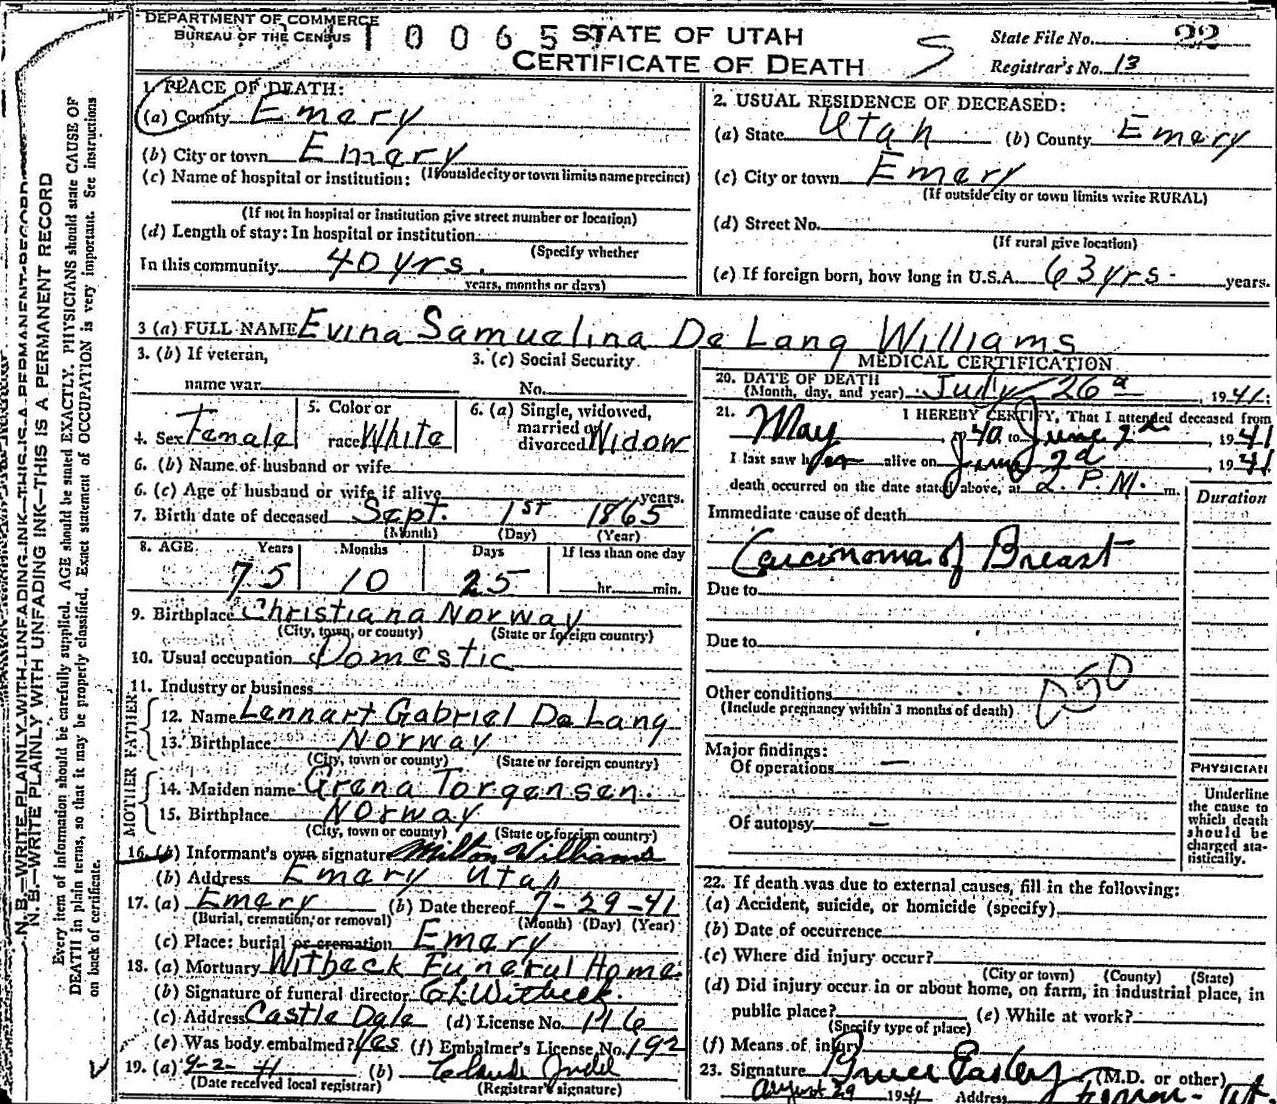 DEPARTMENT OF COMMERCE
BUREAU OF THE CENSUS
1 0 0 6 5
STATE OF UTAH
CERTIFICATE OF DEATH
State File No. 22
Registrar's No. 13
1. PLACE OF DEATH:
(a) County Emery
(b) City or town Emery
(c) Name of hospital or institution: (If outside city or town limits name precinct)
(If not in hospital or institution give street number or location)
(d) Length of stay: In hospital or institution
(Specify whether
In this community 40 yrs.
years, months or days)
2. USUAL RESIDENCE OF DECEASED:
(a) State Utah (b) County Emery
(c) City or town Emery
(If outside city or town limits write RURAL)
(d) Street No.
(If rural give location)
(e) If foreign born, how long in U.S.A. 63 yrs. years.
3 (a) FULL NAME Evina Samuelina De Lang Williams
3. (b) If veteran,
name war
3. (c) Social Security
No.
4. Sex Female
5. Color or
race White
6. (a) Single, widowed,
married or
divorced Widow
6. (b) Name of husband or wife
6. (c) Age of husband or wife if alive years.
7. Birth date of deceased Sept. 1st 1865
(Month) (Day) (Year)
8. AGE Years Months Days If less than one day
75 10 25 hr. min.
9. Birthplace Christiana Norway
(City, town, or county) (State or foreign country)
10. Usual occupation Domestic
11. Industry or business
FATHER
12. Name Lennart Gabriel De Lang
13. Birthplace Norway
(City, town or county) (State or foreign country)
MOTHER
14. Maiden name Grena Torgensen
15. Birthplace Norway
(City, town or county) (State or foreign country)
16. (a) Informant's own signature Milton Williams
(b) Address Emery Utah
17. (a) Emery (b) Date thereof 7-29-41
(Burial, cremation, or removal) (Month) (Day) (Year)
(c) Place: burial or cremation Emery
18. (a) Mortuary Witbeck Funeral Home
(b) Signature of funeral director C L Witbeck.
(c) Address Castle Dale (d) License No. 146
(e) Was body embalmed? Yes (f) Embalmer's License No. 192
19. (a) 9-2-41 (b)
(Date received local registrar) (Registrar's signature)
MEDICAL CERTIFICATION
20. DATE OF DEATH
(Month, day, and year) July 26 , 1941:
21. I HEREBY CERTIFY, That I attended deceased from
May , 1940 to June 2nd , 1941
I last saw her alive on June 2d , 1941
death occurred on the date stated above, at 2. P.M. m.
Duration
Immediate cause of death
Carcinoma of Breast
Due to
Due to
Other conditions 050
(Include pregnancy within 3 months of death)
Major findings:
Of operations —
Of autopsy —
PHYSICIAN
Underline
the cause to
which death
should be
charged sta-
tistically.
22. If death was due to external causes, fill in the following:
(a) Accident, suicide, or homicide (specify)
(b) Date of occurrence
(c) Where did injury occur?
(City or town) (County) (State)
(d) Did injury occur in or about home, on farm, in industrial place, in
public place? (e) While at work?
(Specify type of place)
(f) Means of injury
23. Signature Bruce Easley (M.D. or other)
August 29 1941 Address Ferron - Ut.
N. B.—WRITE PLAINLY WITH UNFADING INK—THIS IS A PERMANENT RECORD
Every item of information should be carefully supplied. AGE should be stated EXACTLY. PHYSICIANS should state CAUSE OF
DEATH in plain terms, so that it may be properly classified. Exact statement of OCCUPATION is very important. See instructions
on back of certificate.